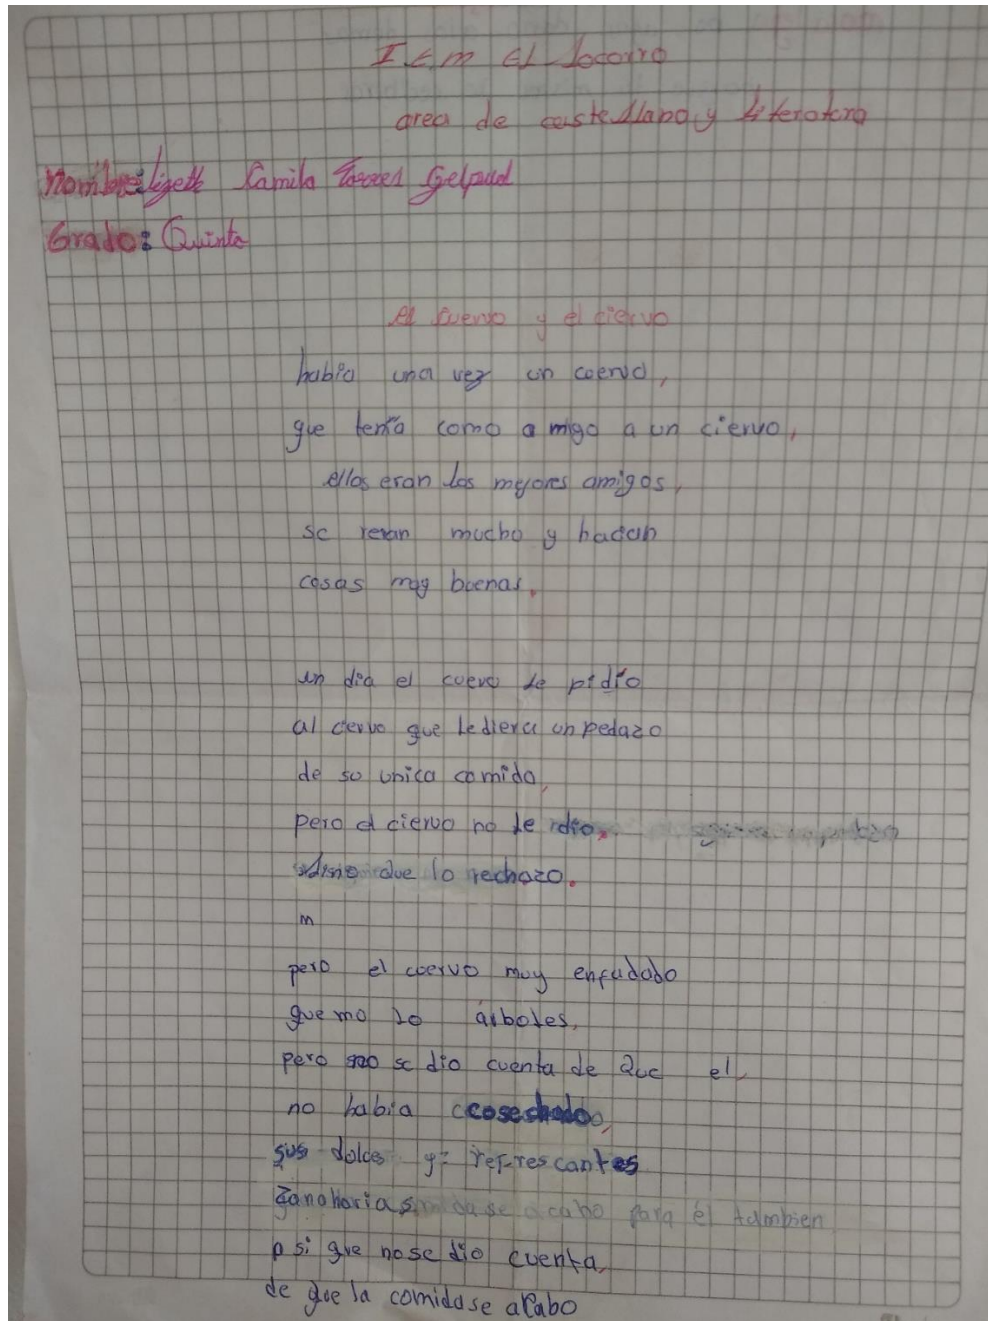 I.E.m El Socorro
area de castellano y literatora
Nombre: ligeth Kamila Torres Gelpud
Grado: Quinto
el cuervo y el ciervo
había una vez un coervo,
que tenía como amigo a un ciervo,
ellos eran los mejores amigos,
se reian mucho y hacian
cosas muy buenas.
un dia el cuevo le pidio
al cervo que le diera un pedazo
de su unica comida,
pero el ciervo no le dio,
que lo rechazo.
m
pero el coervo muy enfudado
quemo lo árboles,
pero no se dio cuenta de Que el,
no habia cosechado,
sus dolces y refrescantes
zanahorias
se acabo para él tambien
o si que no se dio cuenta,
de que la comida se acabo